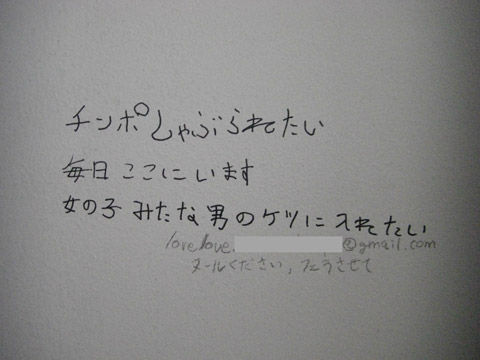 チンポしゃぶられたい
毎日ここにいます
女の子みたな男のケツに入れたい
lovelove. @gmail.com
メールください、フェラさせて